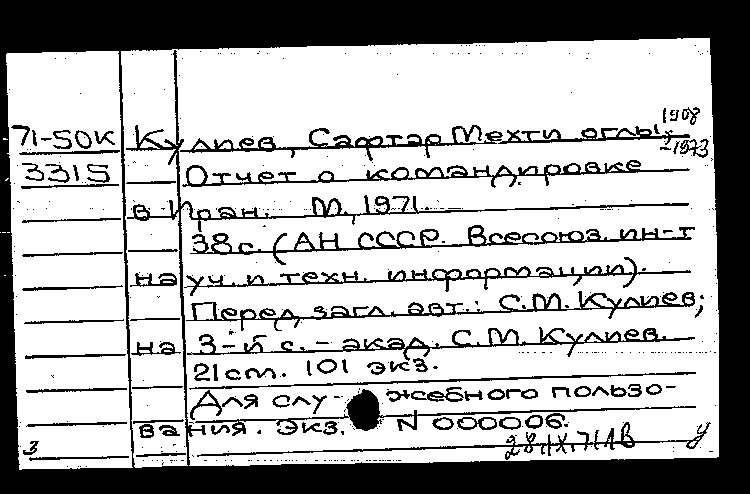 1908
71-50К Кулиев, Сафтар Мехти оглы,
1973
3315 Отчет о командировке
в Иран. М., 1971.
38 с. (АН СССР. Всесоюз. ин-т
науч. и техн. информации).
Перед загл. авт.: С.М. Кулиев;
на 3-й с. - акад. С.М. Кулиев.
21 см. 101 экз.
Для слу- жебного пользо-
вания. Экз. N 000006.
з 28.IX.71 у